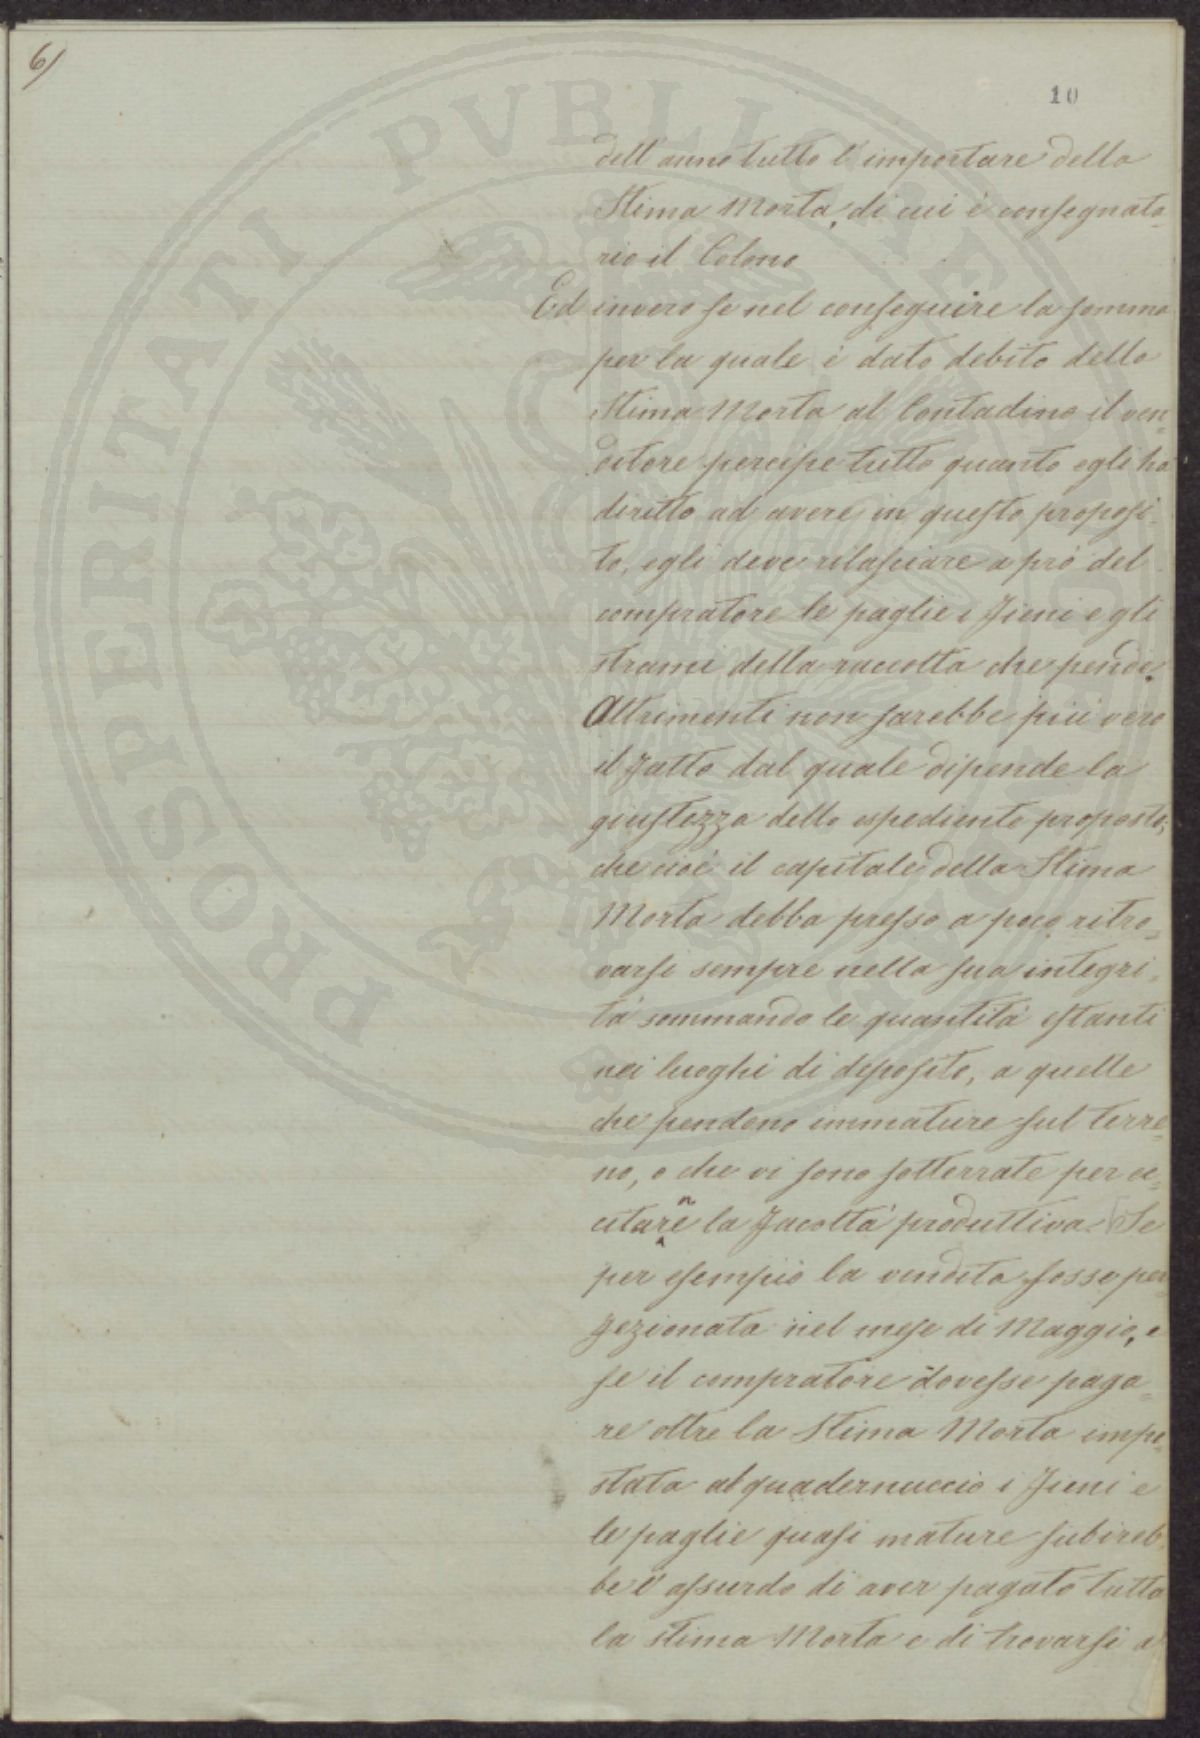 6/
10
dell'anno tutto l'importare della
Stima Morta, di cui è consegnata-
rio il Colono
Ed invero se nel conseguire la somma
per la quale è dato debito della
Stima Morta al Contadino il ven-
ditore percipe tutto quanto egli ha
diritto ad avere in questo proposi-
to, egli deve rilasciare a prò del
compratore le paglie i fieni e gli
strami della raccolta che pende.
Altrimenti non sarebbe più vero
il fatto dal quale dipende la
giustezza dello espediente proposto;
che cioè il capitale della Stima
Morta debba presso a poco ritro-
varsi sempre nella sua integri-
tà sommando le quantità estanti
nei luoghi di deposito, a quelle
che pendono immature sul terre-
no, o che vi sono sotterrate per ec-
citarne la facoltà produttiva. Se
per esempio la vendita fosse per-
fezionata nel mese di Maggio, e
se il compratore dovesse paga-
re oltre la Stima Morta impo-
stata al quadernuccio i fieni e
le paglie quasi mature subireb-
be l'assurdo di aver pagato tutta
la stima Morta e di trovarsi a
PROSPERITATI PVBLICAE